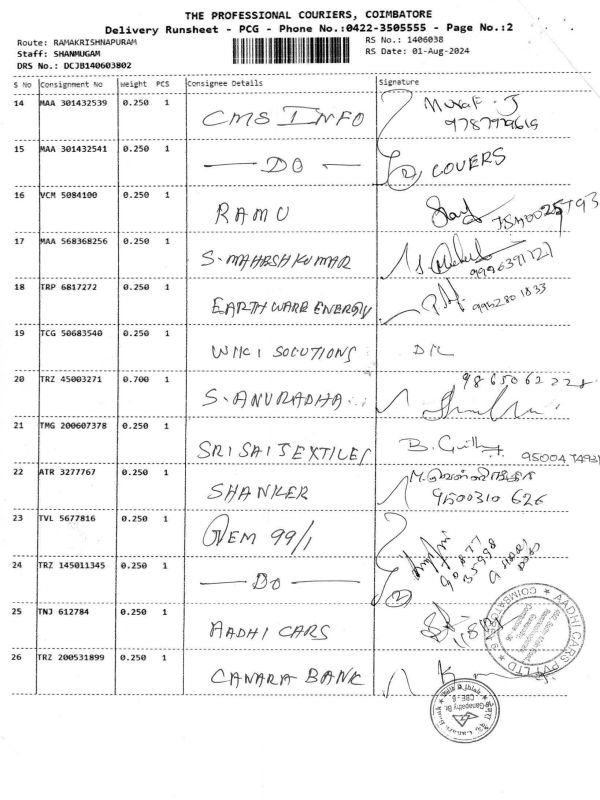 THE PROFESSIONAL COURIERS, COIMBATORE
Delivery Runsheet - PCG - Phone No.:0422-3505555 - Page No.:2
Route: RAMAKRISHNAPURAM RS No.: 1406038
Staff: SHANMUGAM RS Date: 01-Aug-2024
DRS No.: DCJB140603802
S No Consignment No Weight PCS Consignee Details Signature
14 MAA 301432539 0.250 1 CMS INFO
15 MAA 301432541 0.250 1 DO 2 COVERS
16 VCM 5084100 0.250 1 RAMU
17 MAA 568368256 0.250 1 S. MAHESH KUMAR
18 TRP 6817272 0.250 1 EARTH WARE ENERGY 9952801833
19 TCG 50683540 0.250 1 SOLUTIONS
20 TRZ 45003271 0.700 1 S. ANURADHA 9865062228
21 TMG 200607378 0.250 1 SRI SAI TEXTILES B.
22 ATR 3277767 0.250 1 SHANKER 9500310 626
23 TVL 5677816 0.250 1 GEM 99/1
24 TRZ 145011345 0.250 1 DO 2
25 TNJ 612784 0.250 1 AADHI CARS
AADHI CARS PVT LTD COIMBATORE
26 TRZ 200531899 0.250 1 CANARA BANK
Ganapathy Br.
CBE-6